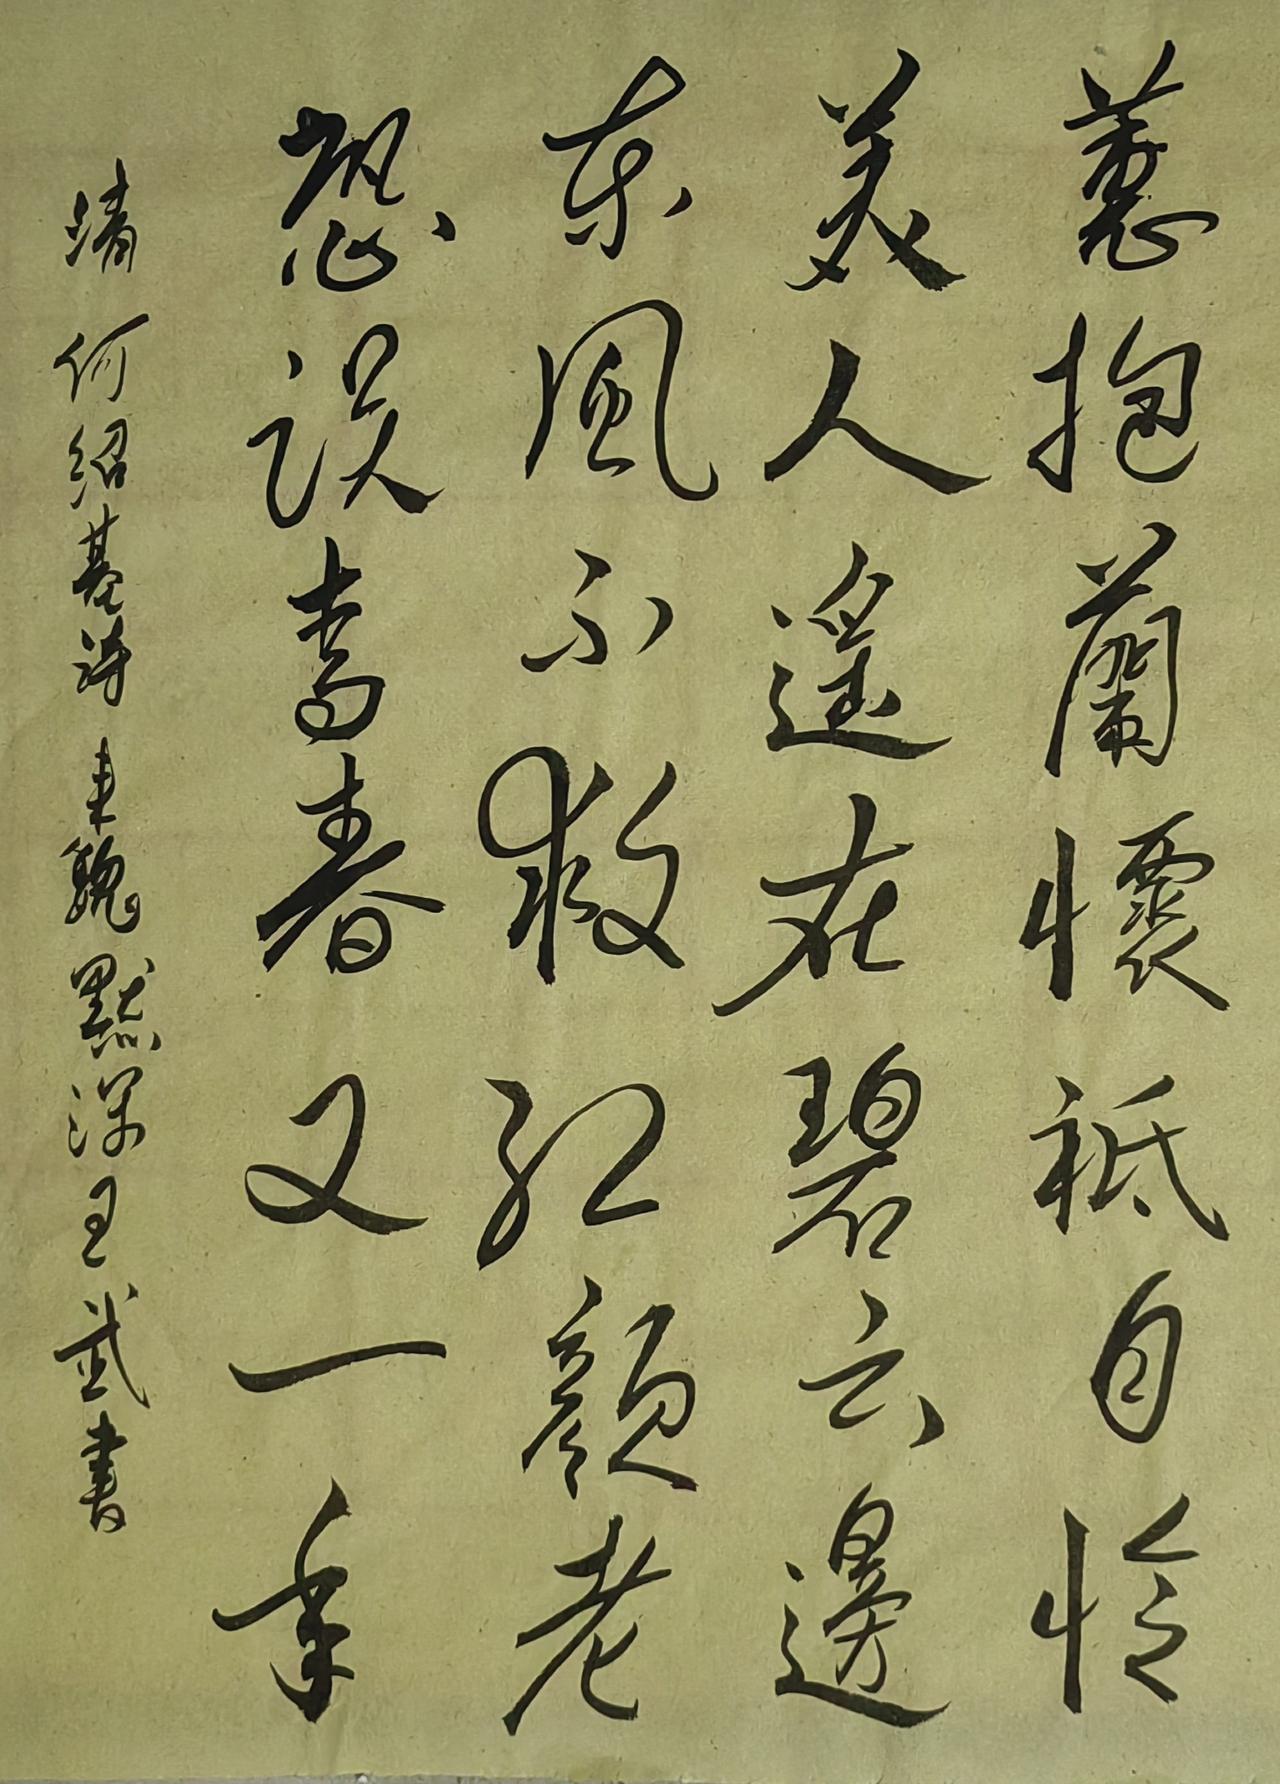 蕙抱蘭懷祗自怜
美人遥在碧云邊
东風不救红顔老
恐误青春又一年
清 何绍基诗 柬魏默深 王武書